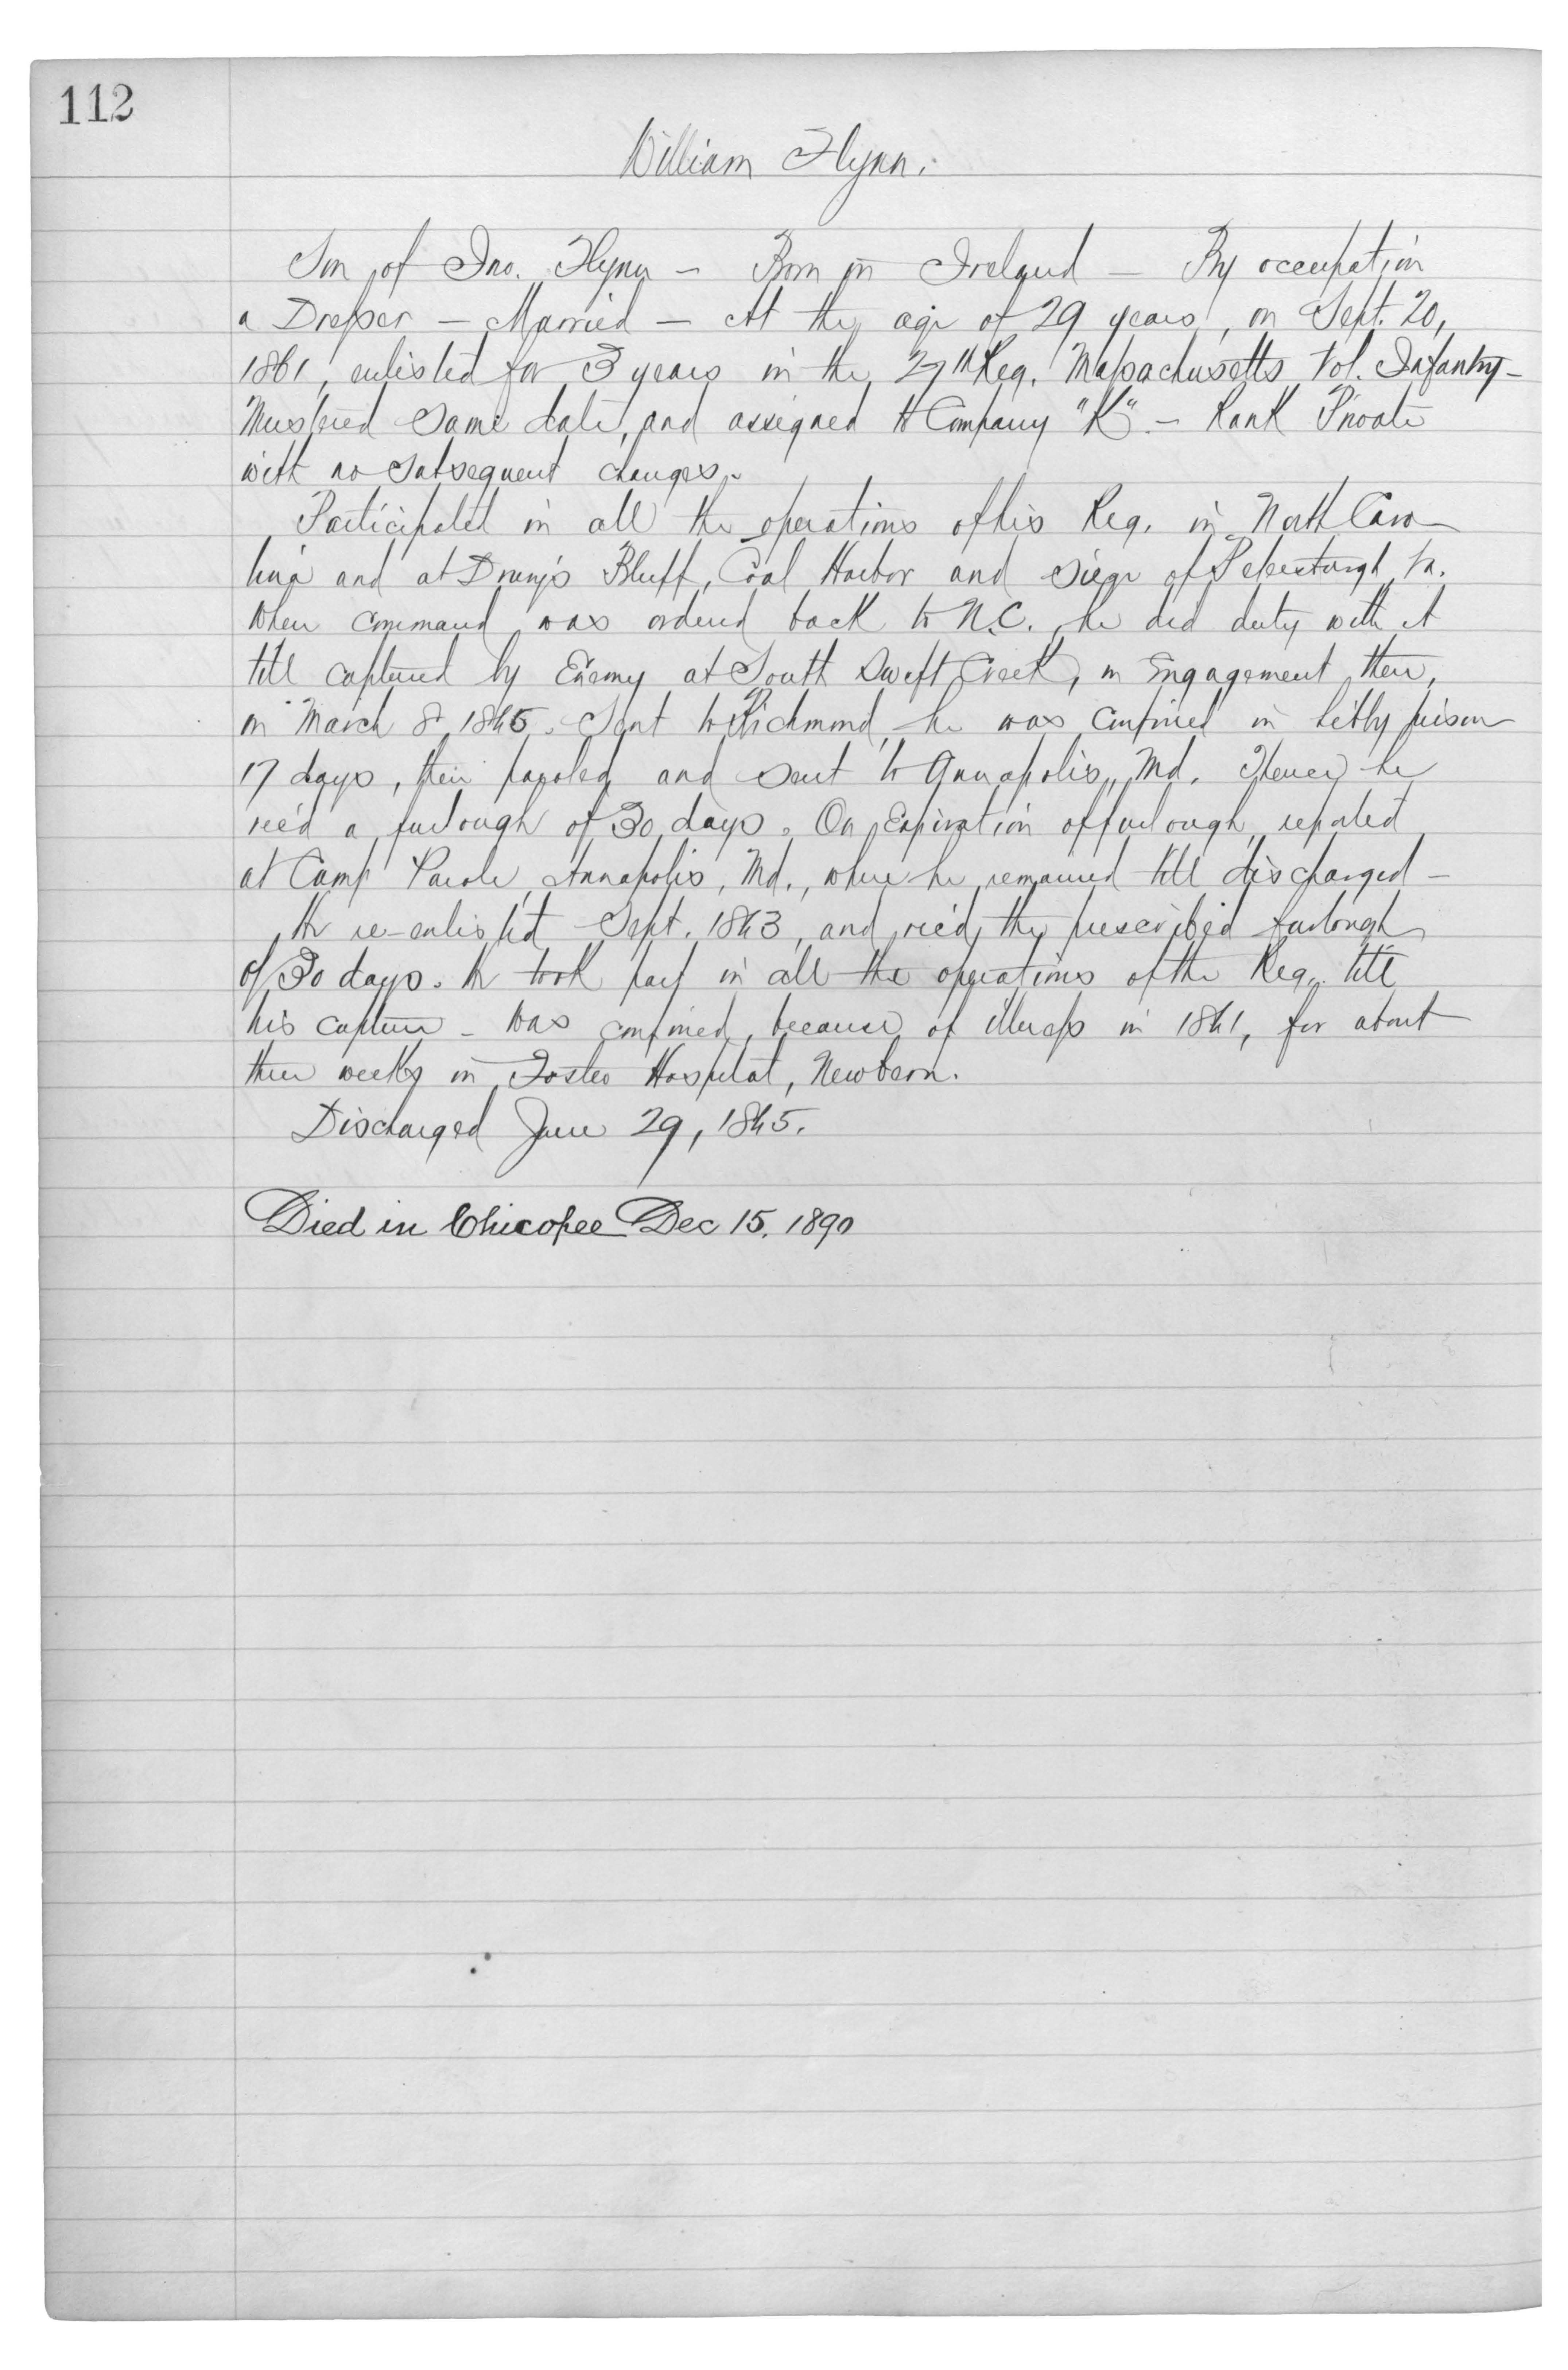 112
William Flynn.
Son of Jno. Flynn – Born in Ireland – By occupation
a Dresser – Married – At the age of 29 years, on Sept. 20,
1861, enlisted for 3 years in the 27th Reg. Massachusetts Vol. Infantry –
Mustered same date, and assigned to Company "K" – Rank Private
with no subsequent changes.
Participated in all the operations of his Reg. in North Caro-
lina and at Drury's Bluff, Coal Harbor and siege of Petersburgh, Va.
When command was ordered back to N.C. he did duty with it
till captured by Enemy at South Swift Creek, in Engagement there,
on March 8, 1865. Sent to Richmond, he was confined in Libby prison
17 days, then paroled and sent to Annapolis, Md. Thence he
rec'd a furlough of 30 days. On Expiration of furlough, reported
at Camp Parole, Annapolis, Md., where he remained till discharged –
He re-enlist'd Sept. 1863, and rec'd the prescribed furlough
of 30 days. He took part in all the operations of the Reg. till
his capture – Was confined, because of illness in 1861, for about
three weeks in Foster Hospital, Newbern.
Discharged June 29, 1865.
Died in Chicopee Dec 15, 1890